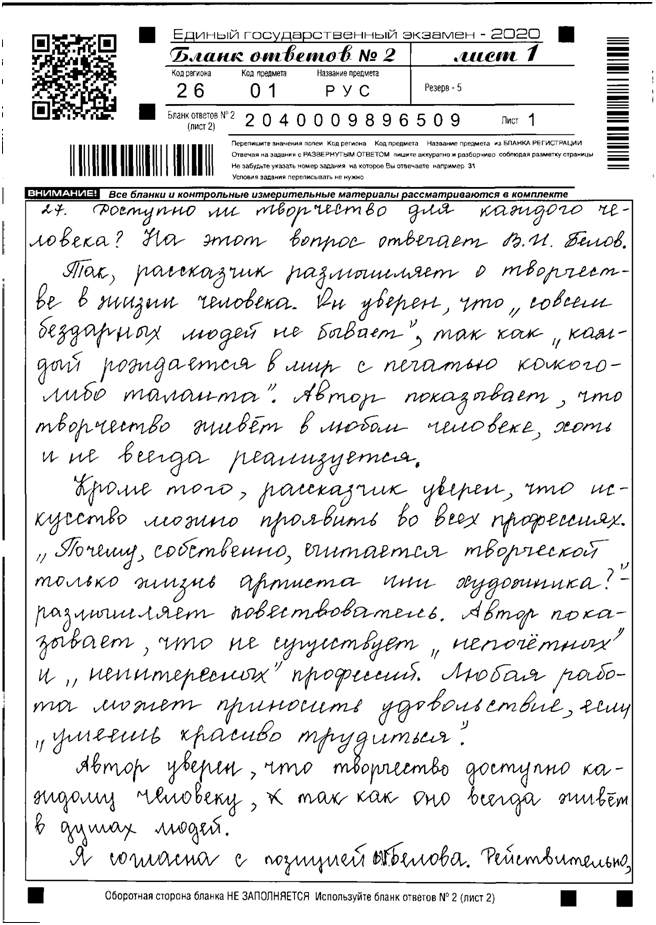 Единый государственный экзамен - 2020
Бланк ответов № 2 лист 1
Код региона Код предмета Название предмета
26 01 РУС Резерв - 5
Бланк ответов № 2 (лист 2) 2040009896509 Лист 1
Перепишите значения полей Код региона Код предмета Название предмета из БЛАНКА РЕГИСТРАЦИИ
Отвечая на задания с РАЗВЕРНУТЫМ ОТВЕТОМ пишите аккуратно и разборчиво соблюдая разметку страницы
Не забудьте указать номер задания на которое Вы отвечаете например 31
Условия задания переписывать не нужно
ВНИМАНИЕ! Все бланки и контрольные измерительные материалы рассматриваются в комплекте
27. Доступно ли творчество для каждого че-
ловека? На этот вопрос отвечает В.И. Белов.
Так, рассказчик размышляет о творчест-
ве в жизни человека. Он уверен, что „совсем
бездарных людей не бывает", так как „каж-
дый рождается в мир с печатью какого-
либо таланта". Автор показывает, что
творчество живёт в любом человеке, хоть
и не всегда реализуется.
Кроме того, рассказчик уверен, что ис-
кусство можно проявить во всех профессиях.
„Почему, собственно, считается творческой
только жизнь артиста или художника?"-
размышляет повествователь. Автор пока-
зывает, что не существует „непочётных"
и „неинтересных" профессий. Любая рабо-
та может приносить удовольствие, если
„умеешь красиво трудиться".
Автор уверен, что творчество доступно ка-
ждому человеку, так как оно всегда живёт
в душах людей.
Я согласна с позицией Белова. Действительно,
Оборотная сторона бланка НЕ ЗАПОЛНЯЕТСЯ Используйте бланк ответов № 2 (лист 2)